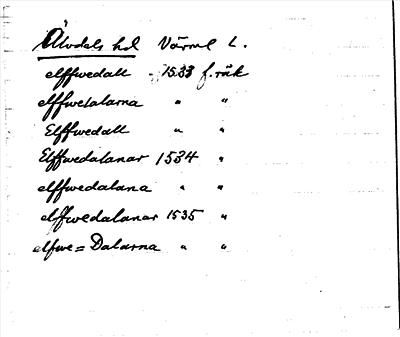 Älvdals hd Värml L.
elffwedall 1533 f.räk
elffwetalarna " "
Elffwedall " "
Elffwedalanar 1534 "
elffwedalana " "
elffwedalanar 1535 "
elfwe=Dalarna " "